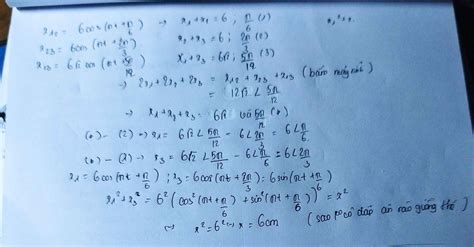 x₁₂ = 6cos(πt + π/6) → x₁ + x₂ = 6∠π/6 (1)
x₂₃ = 6cos(πt + 2π/3) x₂ + x₃ = 6∠2π/3 (2)
x₁₃ = 6√2 cos(πt + 5π/12) x₁ + x₃ = 6√2∠5π/12 (3)
→ 2x₁ + 2x₂ + 2x₃ = x₁₂ + x₂₃ + x₁₃ (bấm máy nhé)
= 12√2∠5π/12
→ x₁ + x₂ + x₃ = 6√2 và 5π/12 (*)
(*) - (2) → x₁ = 6√2∠5π/12 - 6∠2π/3 = 6∠π/6
(*) - (1) → x₃ = 6√2∠5π/12 - 6∠π/6 = 6∠2π/3
x₁ = 6cos(πt + π/6); x₃ = 6cos(πt + 2π/3) = 6sin(πt + π/6)
x₁² + x₃² = 6²(cos²(πt + π/6) + sin²(πt + π/6)) = x²
⇔ x² = 6² ⇔ x = 6cm (sao ko có đáp án nào giống thế)